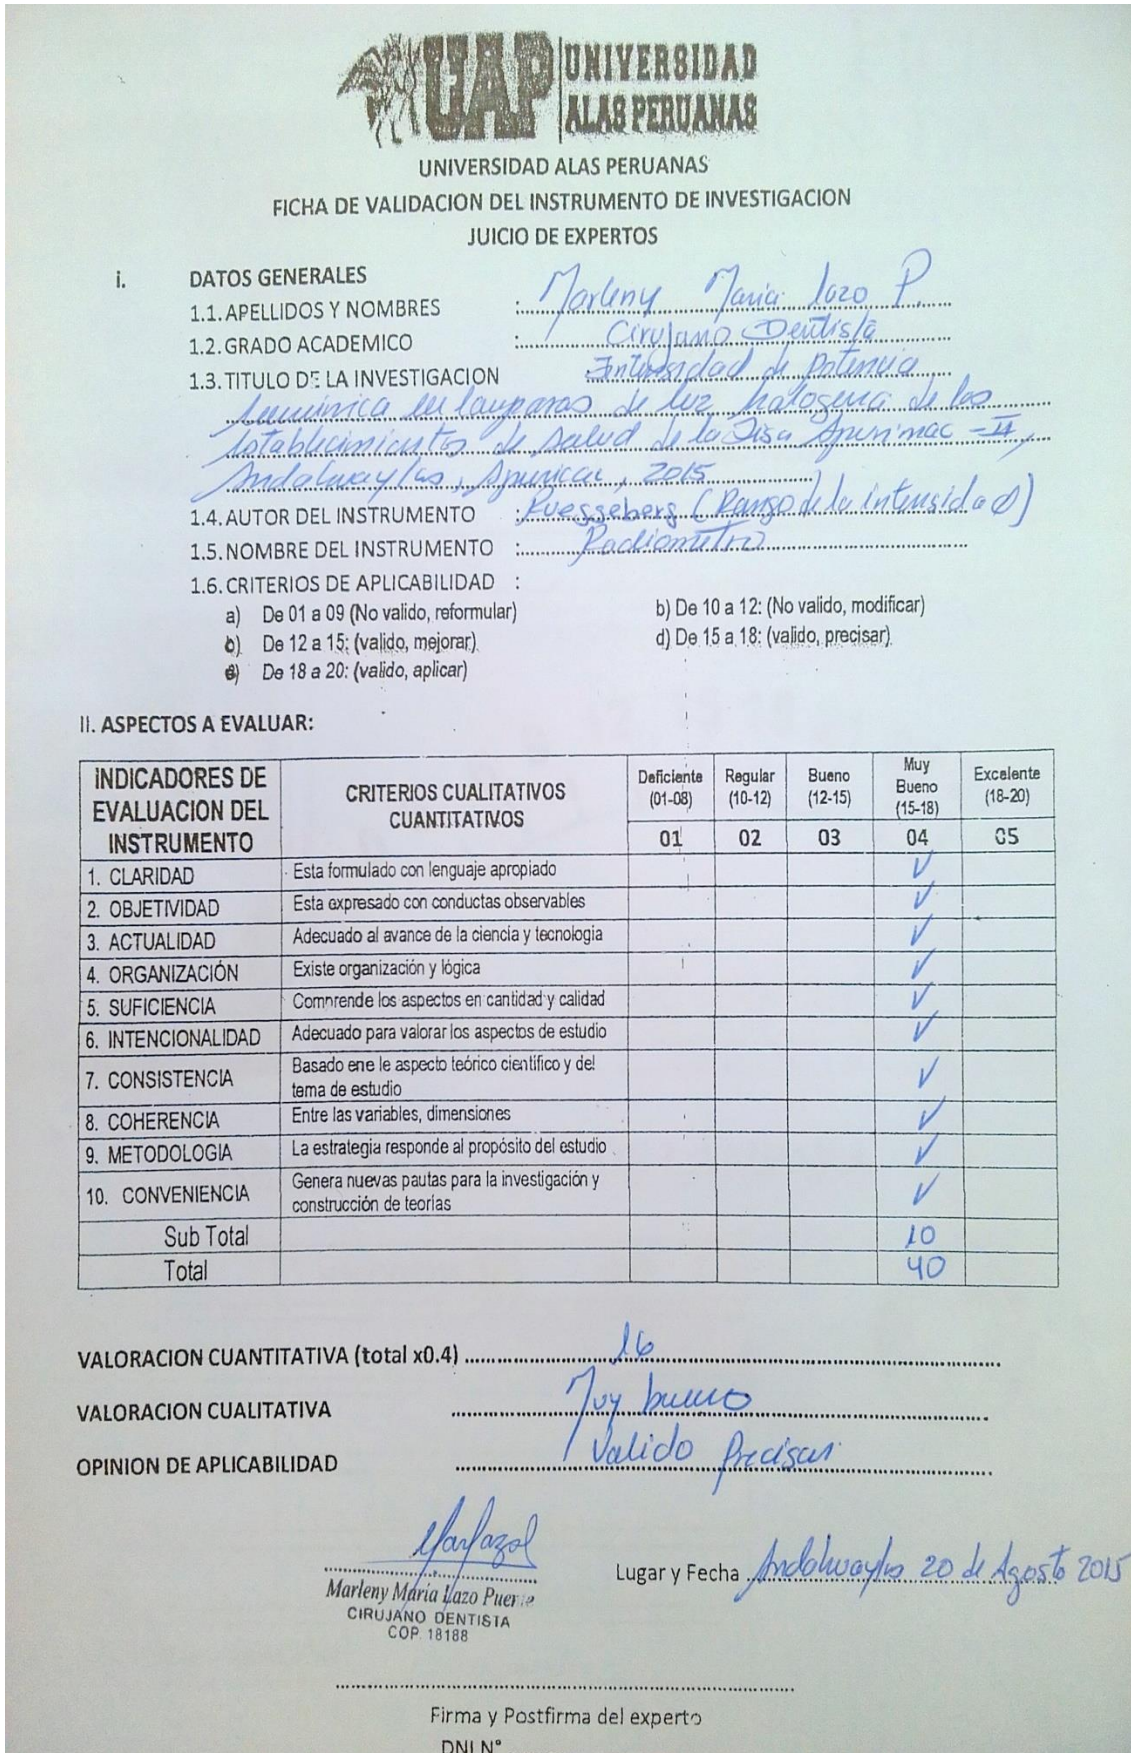 UAP UNIVERSIDAD
ALAS PERUANAS
UNIVERSIDAD ALAS PERUANAS
FICHA DE VALIDACION DEL INSTRUMENTO DE INVESTIGACION
JUICIO DE EXPERTOS
i. DATOS GENERALES
1.1. APELLIDOS Y NOMBRES : Marleny Maria lozo P.
1.2. GRADO ACADEMICO : Cirujano Dentista
1.3. TITULO DE LA INVESTIGACION Intensidad de Potencia
lumínica en lamparas de luz halogena de los
Establecimientos de Salud de la Disa Apurimac - II,
Andahuaylas, Apurimac, 2015
1.4. AUTOR DEL INSTRUMENTO : Ruesseberg (Rango de la intensidad)
1.5. NOMBRE DEL INSTRUMENTO : Radiometro
1.6. CRITERIOS DE APLICABILIDAD :
a) De 01 a 09 (No valido, reformular) b) De 10 a 12: (No valido, modificar)
c) De 12 a 15: (valido, mejorar) d) De 15 a 18: (valido, precisar)
e) De 18 a 20: (valido, aplicar)
II. ASPECTOS A EVALUAR:
INDICADORES DE EVALUACION DEL INSTRUMENTO CRITERIOS CUALITATIVOS CUANTITATIVOS Deficiente (01-08) Regular (10-12) Bueno (12-15) Muy Bueno (15-18) Excelente (18-20)
01 02 03 04 05
1. CLARIDAD Esta formulado con lenguaje apropiado ✓
2. OBJETIVIDAD Esta expresado con conductas observables ✓
3. ACTUALIDAD Adecuado al avance de la ciencia y tecnologia ✓
4. ORGANIZACIÓN Existe organización y lógica ✓
5. SUFICIENCIA Comprende los aspectos en cantidad y calidad ✓
6. INTENCIONALIDAD Adecuado para valorar los aspectos de estudio ✓
7. CONSISTENCIA Basado ene le aspecto teórico científico y del tema de estudio ✓
8. COHERENCIA Entre las variables, dimensiones ✓
9. METODOLOGIA La estrategia responde al propósito del estudio ✓
10. CONVENIENCIA Genera nuevas pautas para la investigación y construcción de teorías ✓
Sub Total 10
Total 40
VALORACION CUANTITATIVA (total x0.4) 16
VALORACION CUALITATIVA Muy bueno
OPINION DE APLICABILIDAD Valido Precisar
Marleny María Lazo Puerte
CIRUJANO DENTISTA
COP. 18188
Lugar y Fecha Andahuaylas 20 de Agosto 2015
Firma y Postfirma del experto
DNI N°